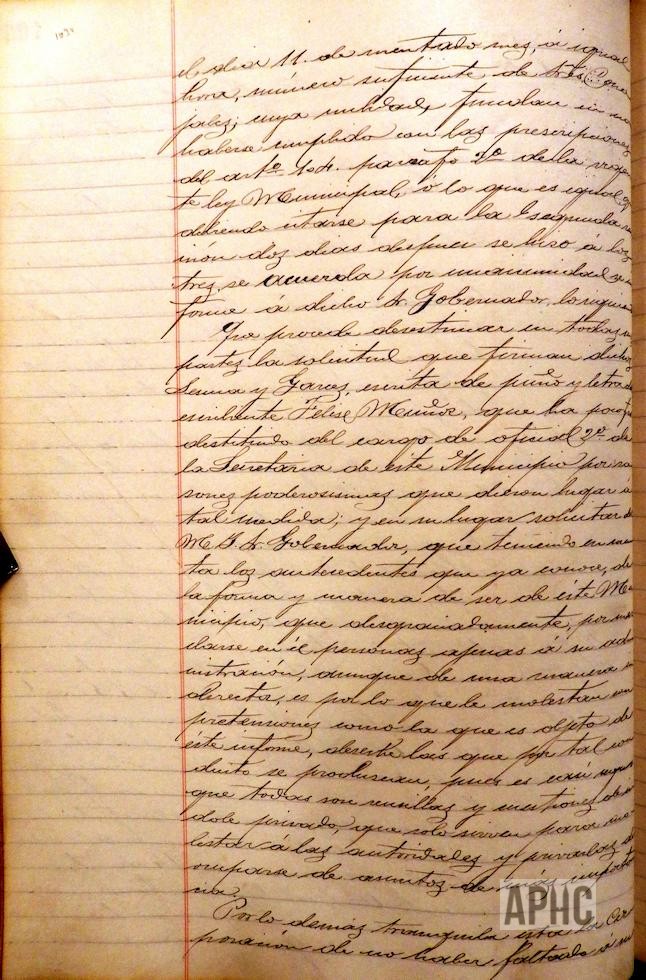 el dia 11. de mentado mes, á igual
hora, número suficiente de tres Conce
jales; cuya nulidad, fundan en no
haberse cumplido con las prescripciones
del artº 104. parrafo 2º de la vigen
te ley Municipal, ó lo que es igual, qe
debiendo citarse para la segunda se
sión dos dias despues se hizo á los
tres, se acuerda por unanimidad, se in
forme á dicho Sr. Gobernador, lo siguiente
Que procede desestimar en todas sus
partes la solicitud que firman dichos
Sesma y Garces, escrita de puño y letra del
escribiente Felix Muñoz, que ha poco fué
destituido del cargo de oficial 2º de
la Secretaria de este Municipio por ra
sones poderosisimas que dieron lugar á
tal medida; y en su lugar solicitar de
M. I. Sr. Gobernador, que teniendo en cuen
ta los antecedentes que ya conoce, de
la forma y manera de ser de éste Mu
nicipio, que desgraciadamente, por mez
clarse en él personas ajenas á su admi
nistración, aunque de una manera in
directa, es por lo que le molestan con
pretensiones como la que es objeto de
éste informe, deseche las que por tal con
ducto se produscan, pues es casi seguro
que todas son rencillas y cuestiones de in
dole privado, que solo sirven para mo
lestar á las autoridades y privarlas de
ocuparse de asuntos de más importan
cia.
Por lo demás tranquila está la Cor
poración de no haber faltado á su
APHC